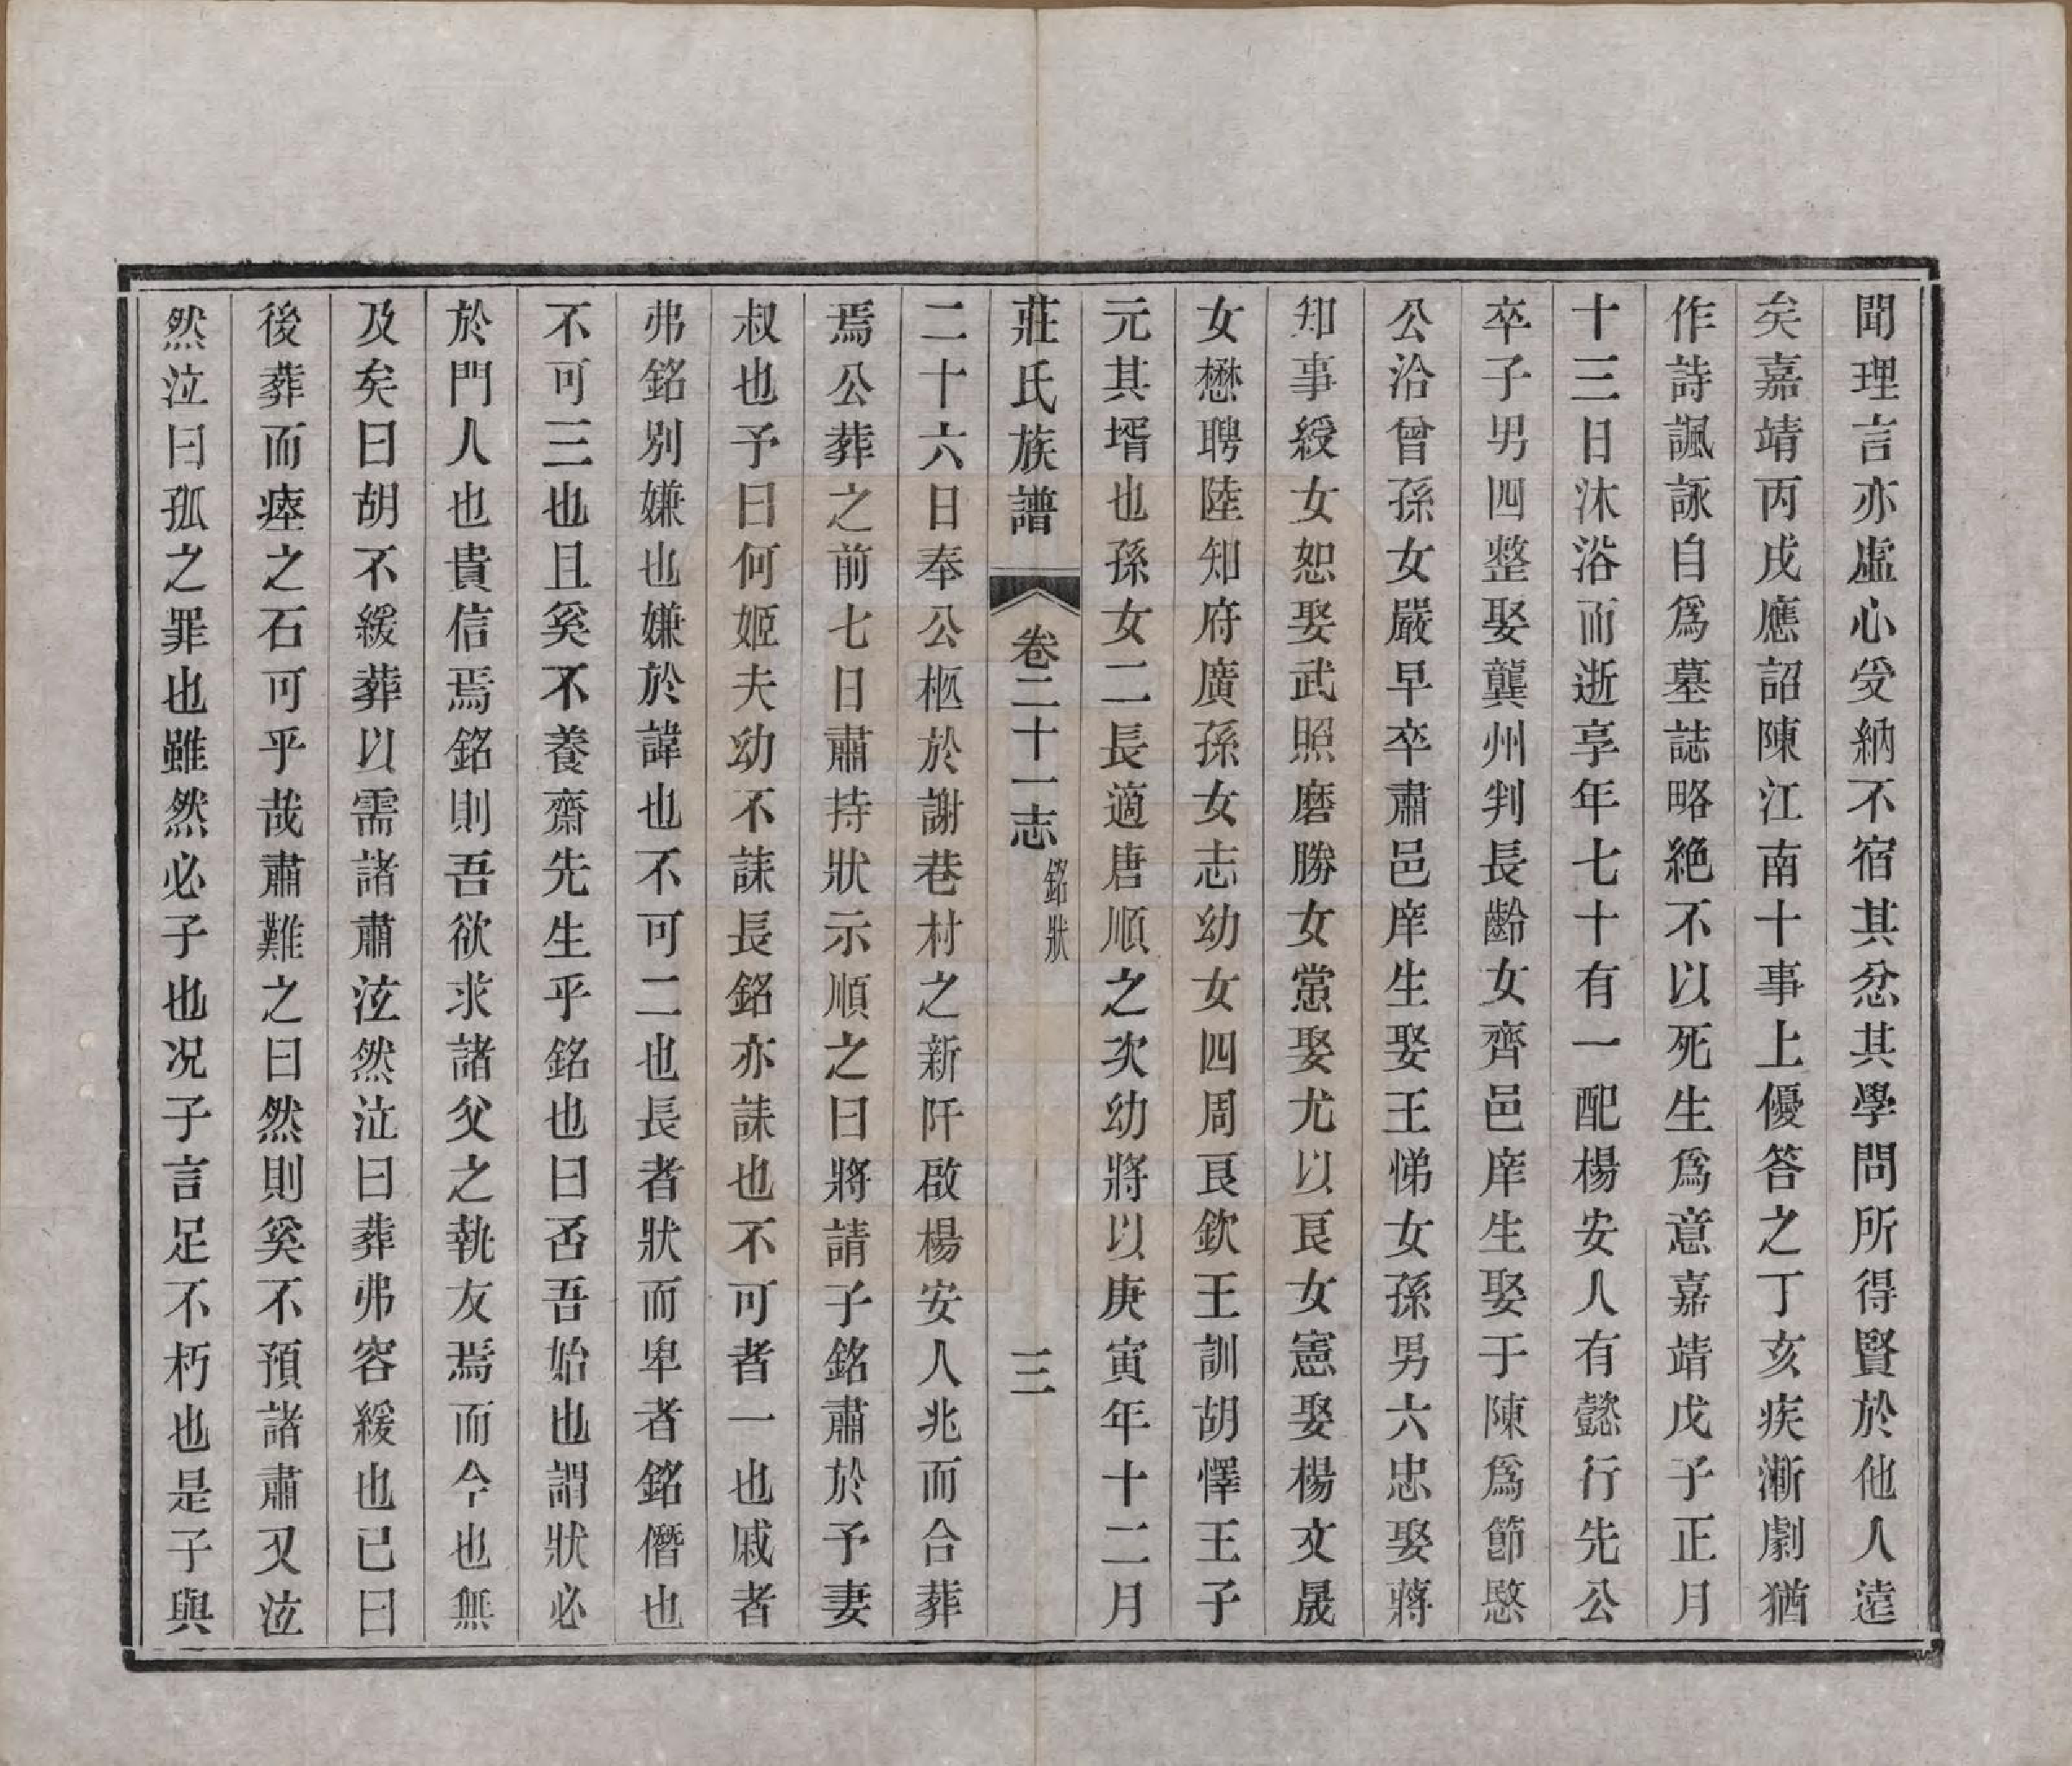 聞理言亦虛心受納不宿其忿其學問所得賢於他人遠
矣嘉靖丙戌應詔陳江南十事上優答之丁亥疾漸劇猶
作詩諷詠自爲墓誌略絶不以死生爲意嘉靖戊子正月
十三日沐浴而逝享年七十有一配楊安人有懿行先公
卒子男四整娶龔州判長齡女齊邑庠生娶于陳爲節愍
公洽曾孫女嚴早卒肅邑庠生娶王悌女孫男六忠娶蔣
知事綬女恕娶武照磨勝女甞娶尤以良女憲娶楊文晟
女懋聘陸知府廣孫女志幼女四周良欽王訓胡懌王子
元其壻也孫女二長適唐順之次幼將以庚寅年十二月
莊氏族譜 卷二十一志 銘狀 三
二十六日奉公柩於謝巷村之新阡啟楊安人兆而合葬
焉公葬之前七日肅持狀示順之曰將請子銘肅於予妻
叔也予曰何姬夫幼不誄長銘亦誄也不可者一也戚者
弗銘別嫌也嫌於諱也不可二也長者狀而卑者銘僭也
不可三也且奚不養齋先生乎銘也曰否吾始也謂狀必
於門人也貴信焉銘則吾欲求諸父之執友焉而今也無
及矣曰胡不緩葬以需諸肅泫然泣曰葬弗容緩也已曰
後葬而瘞之石可乎哉肅難之曰然則奚不預諸肅又泫
然泣曰孤之罪也雖然必子也况子言足不朽也是子與